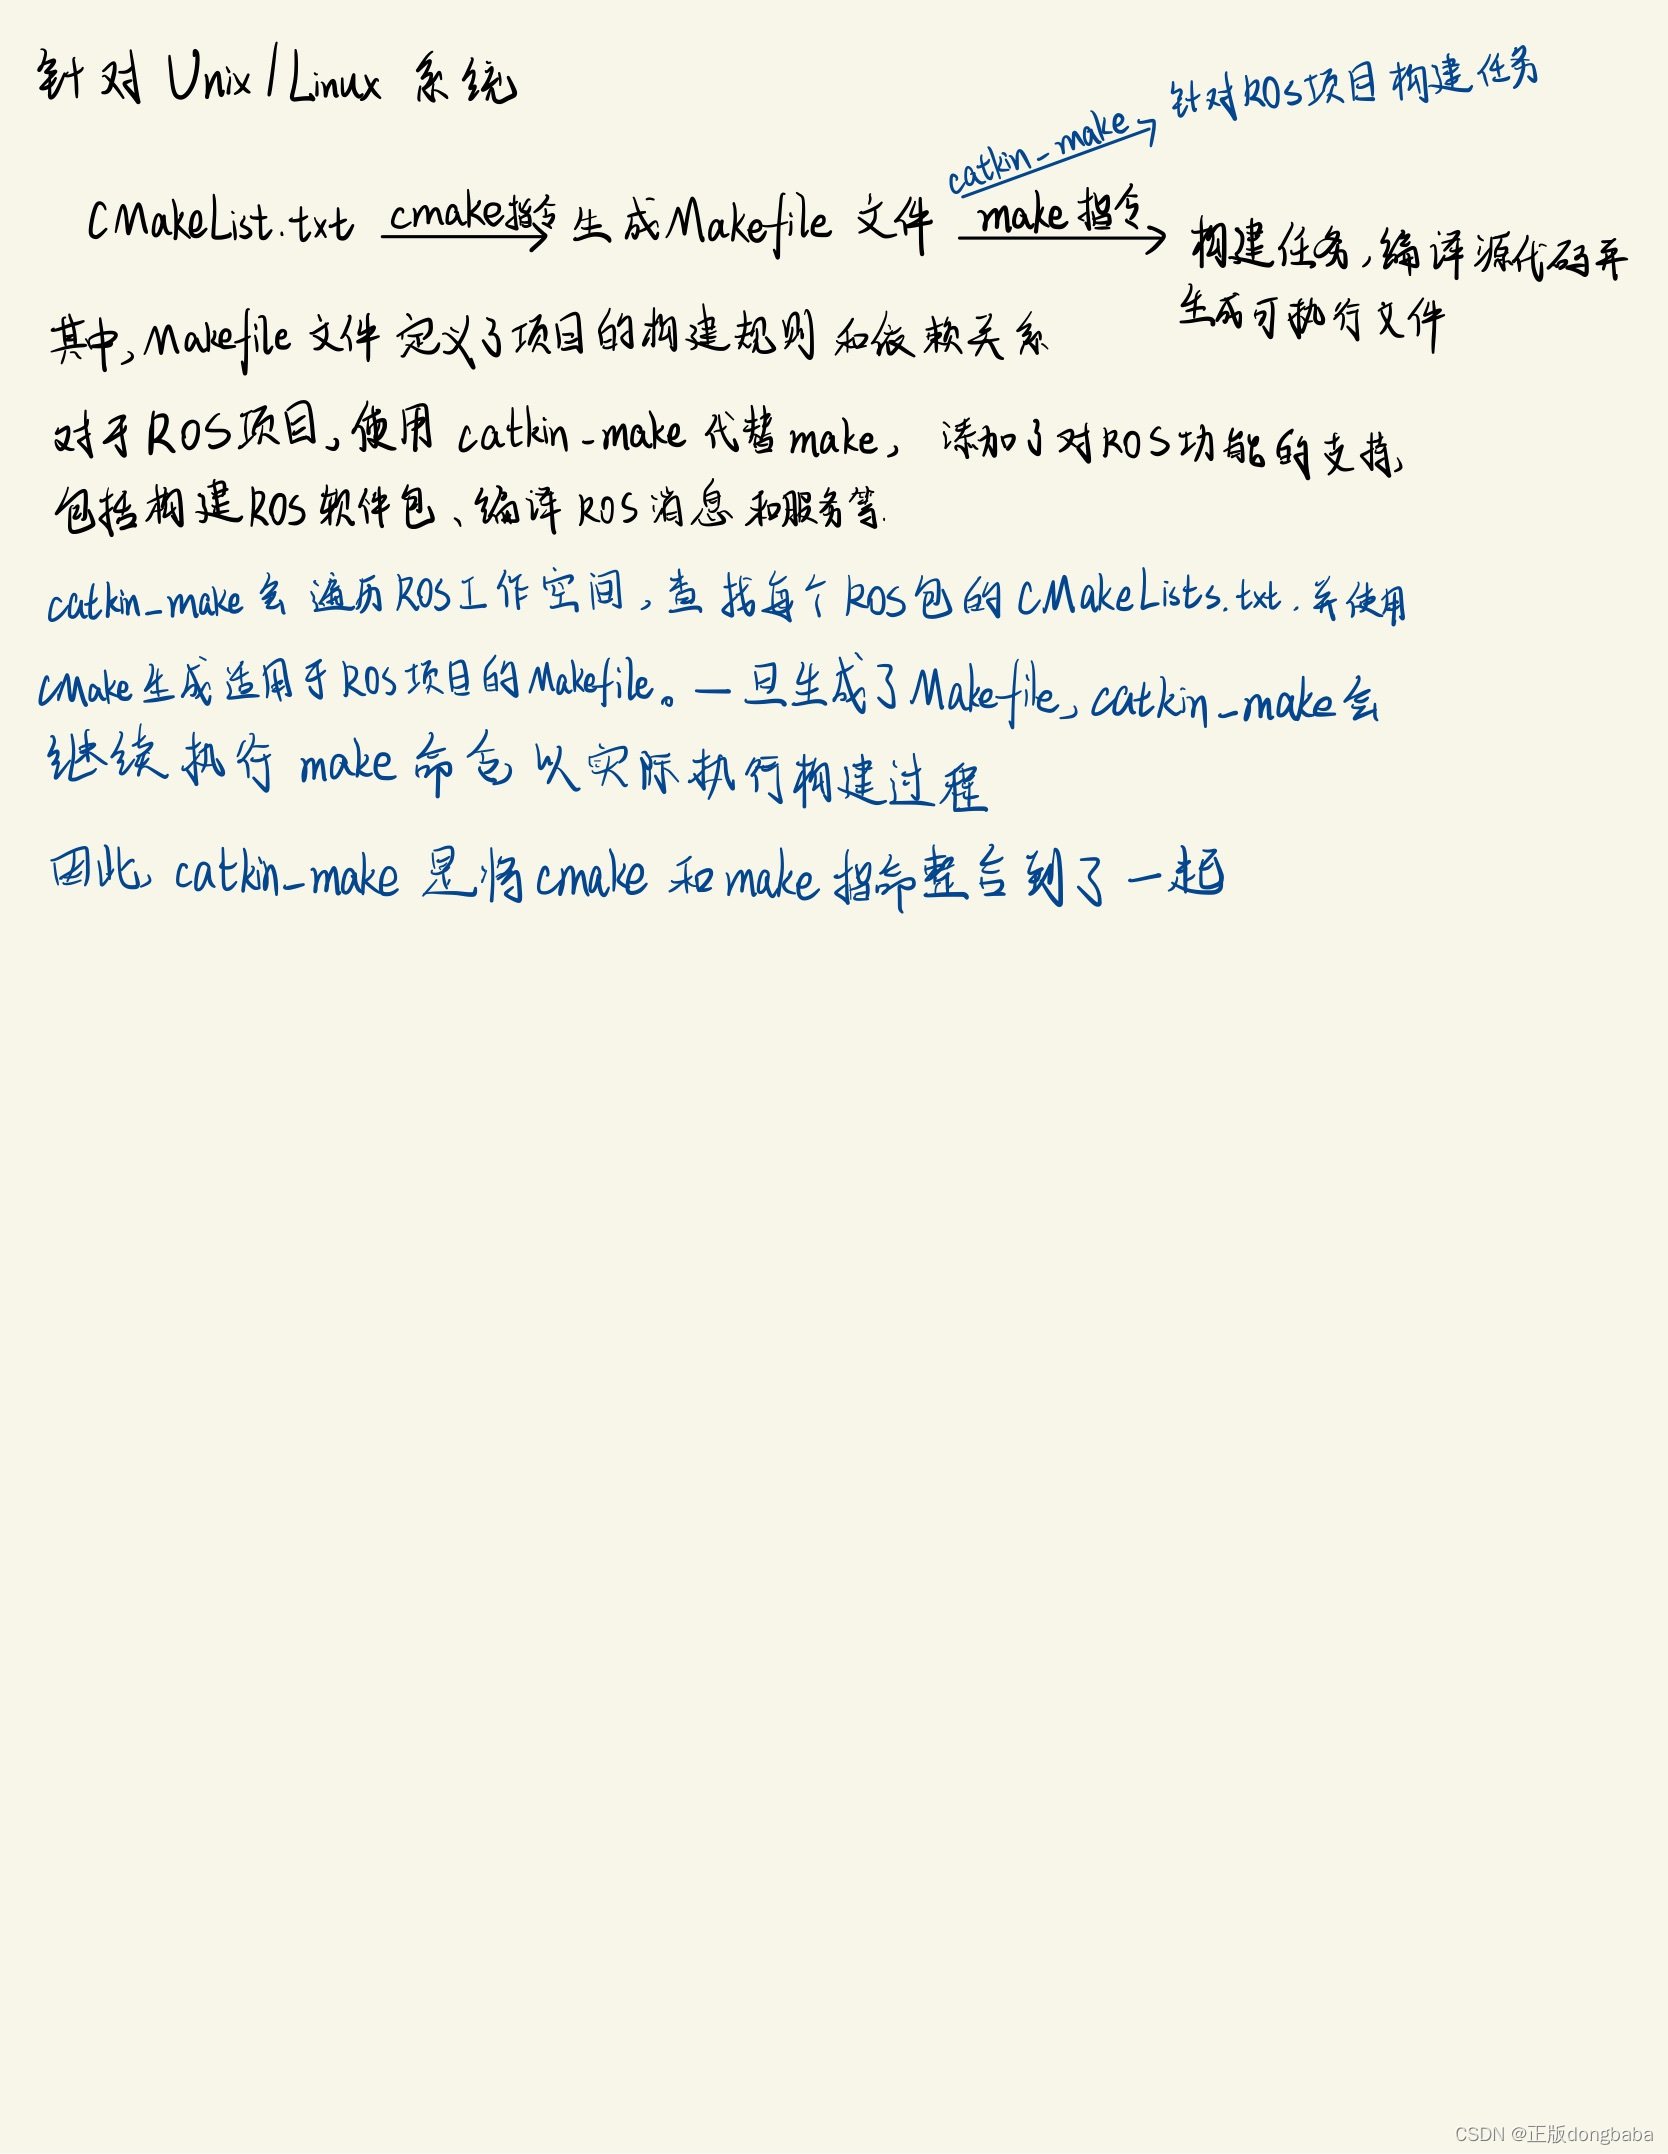 针对 Unix/Linux 系统
catkin_make 针对ROS项目构建任务
CMakeList.txt cmake指令 生成Makefile 文件 make指令 构建任务,编译源代码并
生成可执行文件
其中,Makefile 文件定义了项目的构建规则和依赖关系
对于ROS项目,使用 catkin_make 代替 make, 添加了对ROS功能的支持,
包括构建ROS软件包、编译ROS消息和服务等.
catkin_make会遍历ROS工作空间,查找每个ROS包的CMakeLists.txt.并使用
CMake生成适用于ROS项目的Makefile。一旦生成了Makefile,catkin_make会
继续执行 make 命令以实际执行构建过程
因此,catkin_make 是将cmake 和make 指命整合到了一起
CSDN @正版dongbaba